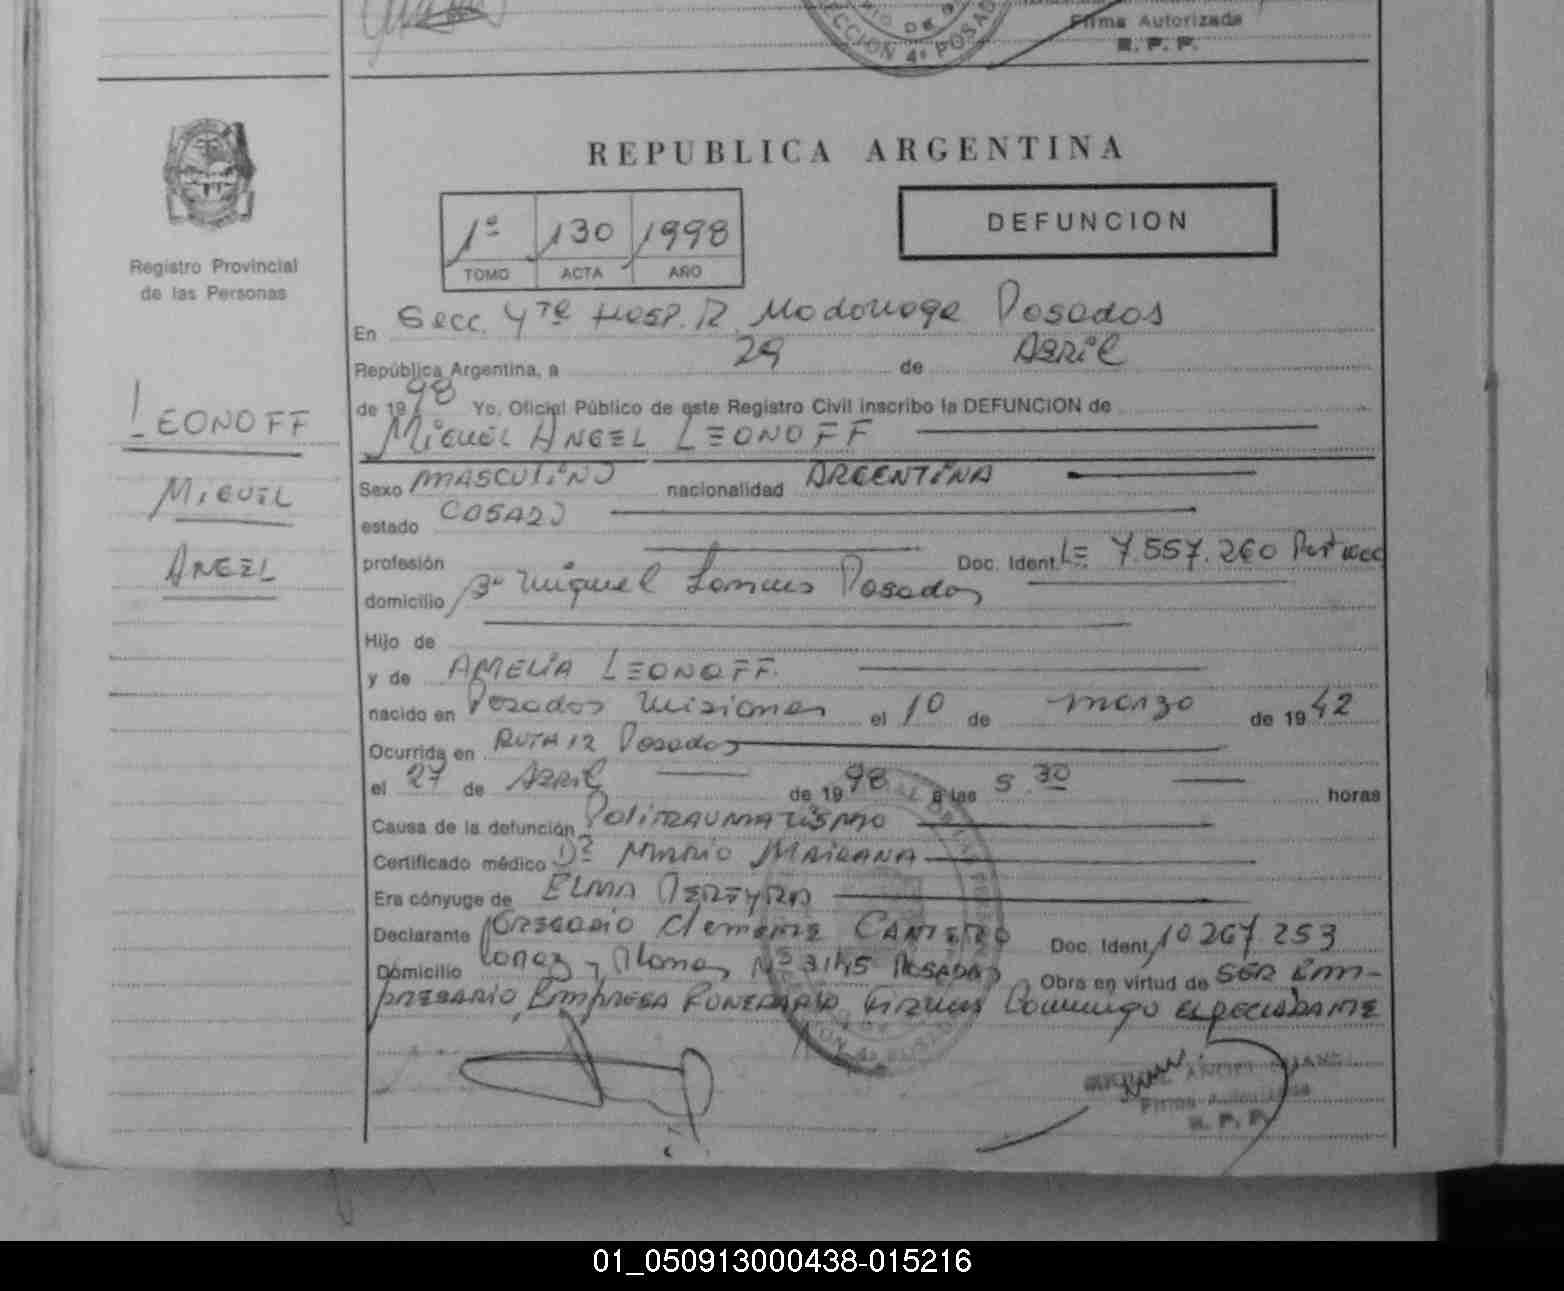 CCION 4ª POSAD
Firma Autorizada
R. P. P.
REPUBLICA ARGENTINA
1º 130 1998
TOMO ACTA AÑO
DEFUNCION
Registro Provincial
de las Personas
LEONOFF
MIGUEL
ANGEL
En Secc. 4ta Hosp. R. Madariaga Posadas
República Argentina, a 29 de ABRIL
de 1998 Yo, Oficial Público de este Registro Civil inscribo la DEFUNCION de
MIGUEL ANGEL LEONOFF
Sexo MASCULINO nacionalidad ARGENTINA
estado CASADO
profesión Doc. Ident. LE 7.557.260
domicilio Bº Miguel Posadas
Hijo de
y de AMELIA LEONOFF
nacido en Posadas Misiones el 10 de marzo de 1942
Ocurrida en RUTA 12 Posadas
el 27 de ABRIL de 1998 a las 5.30 horas
Causa de la defunción POLITRAUMATISMO
Certificado médico Dº MARIO MAIRANA
Era cónyuge de ELMA PEREYRA
Declarante GREGORIO Clemente CANTERO Doc. Ident. 10267.253
Domicilio y Nº 3145 POSADAS Obra en virtud de SER EM-
PRESARIO EMPRESA FUNERARIA Domingo EL DECLARANTE
Firma Autorizada
R. P. P.
01_050913000438-015216